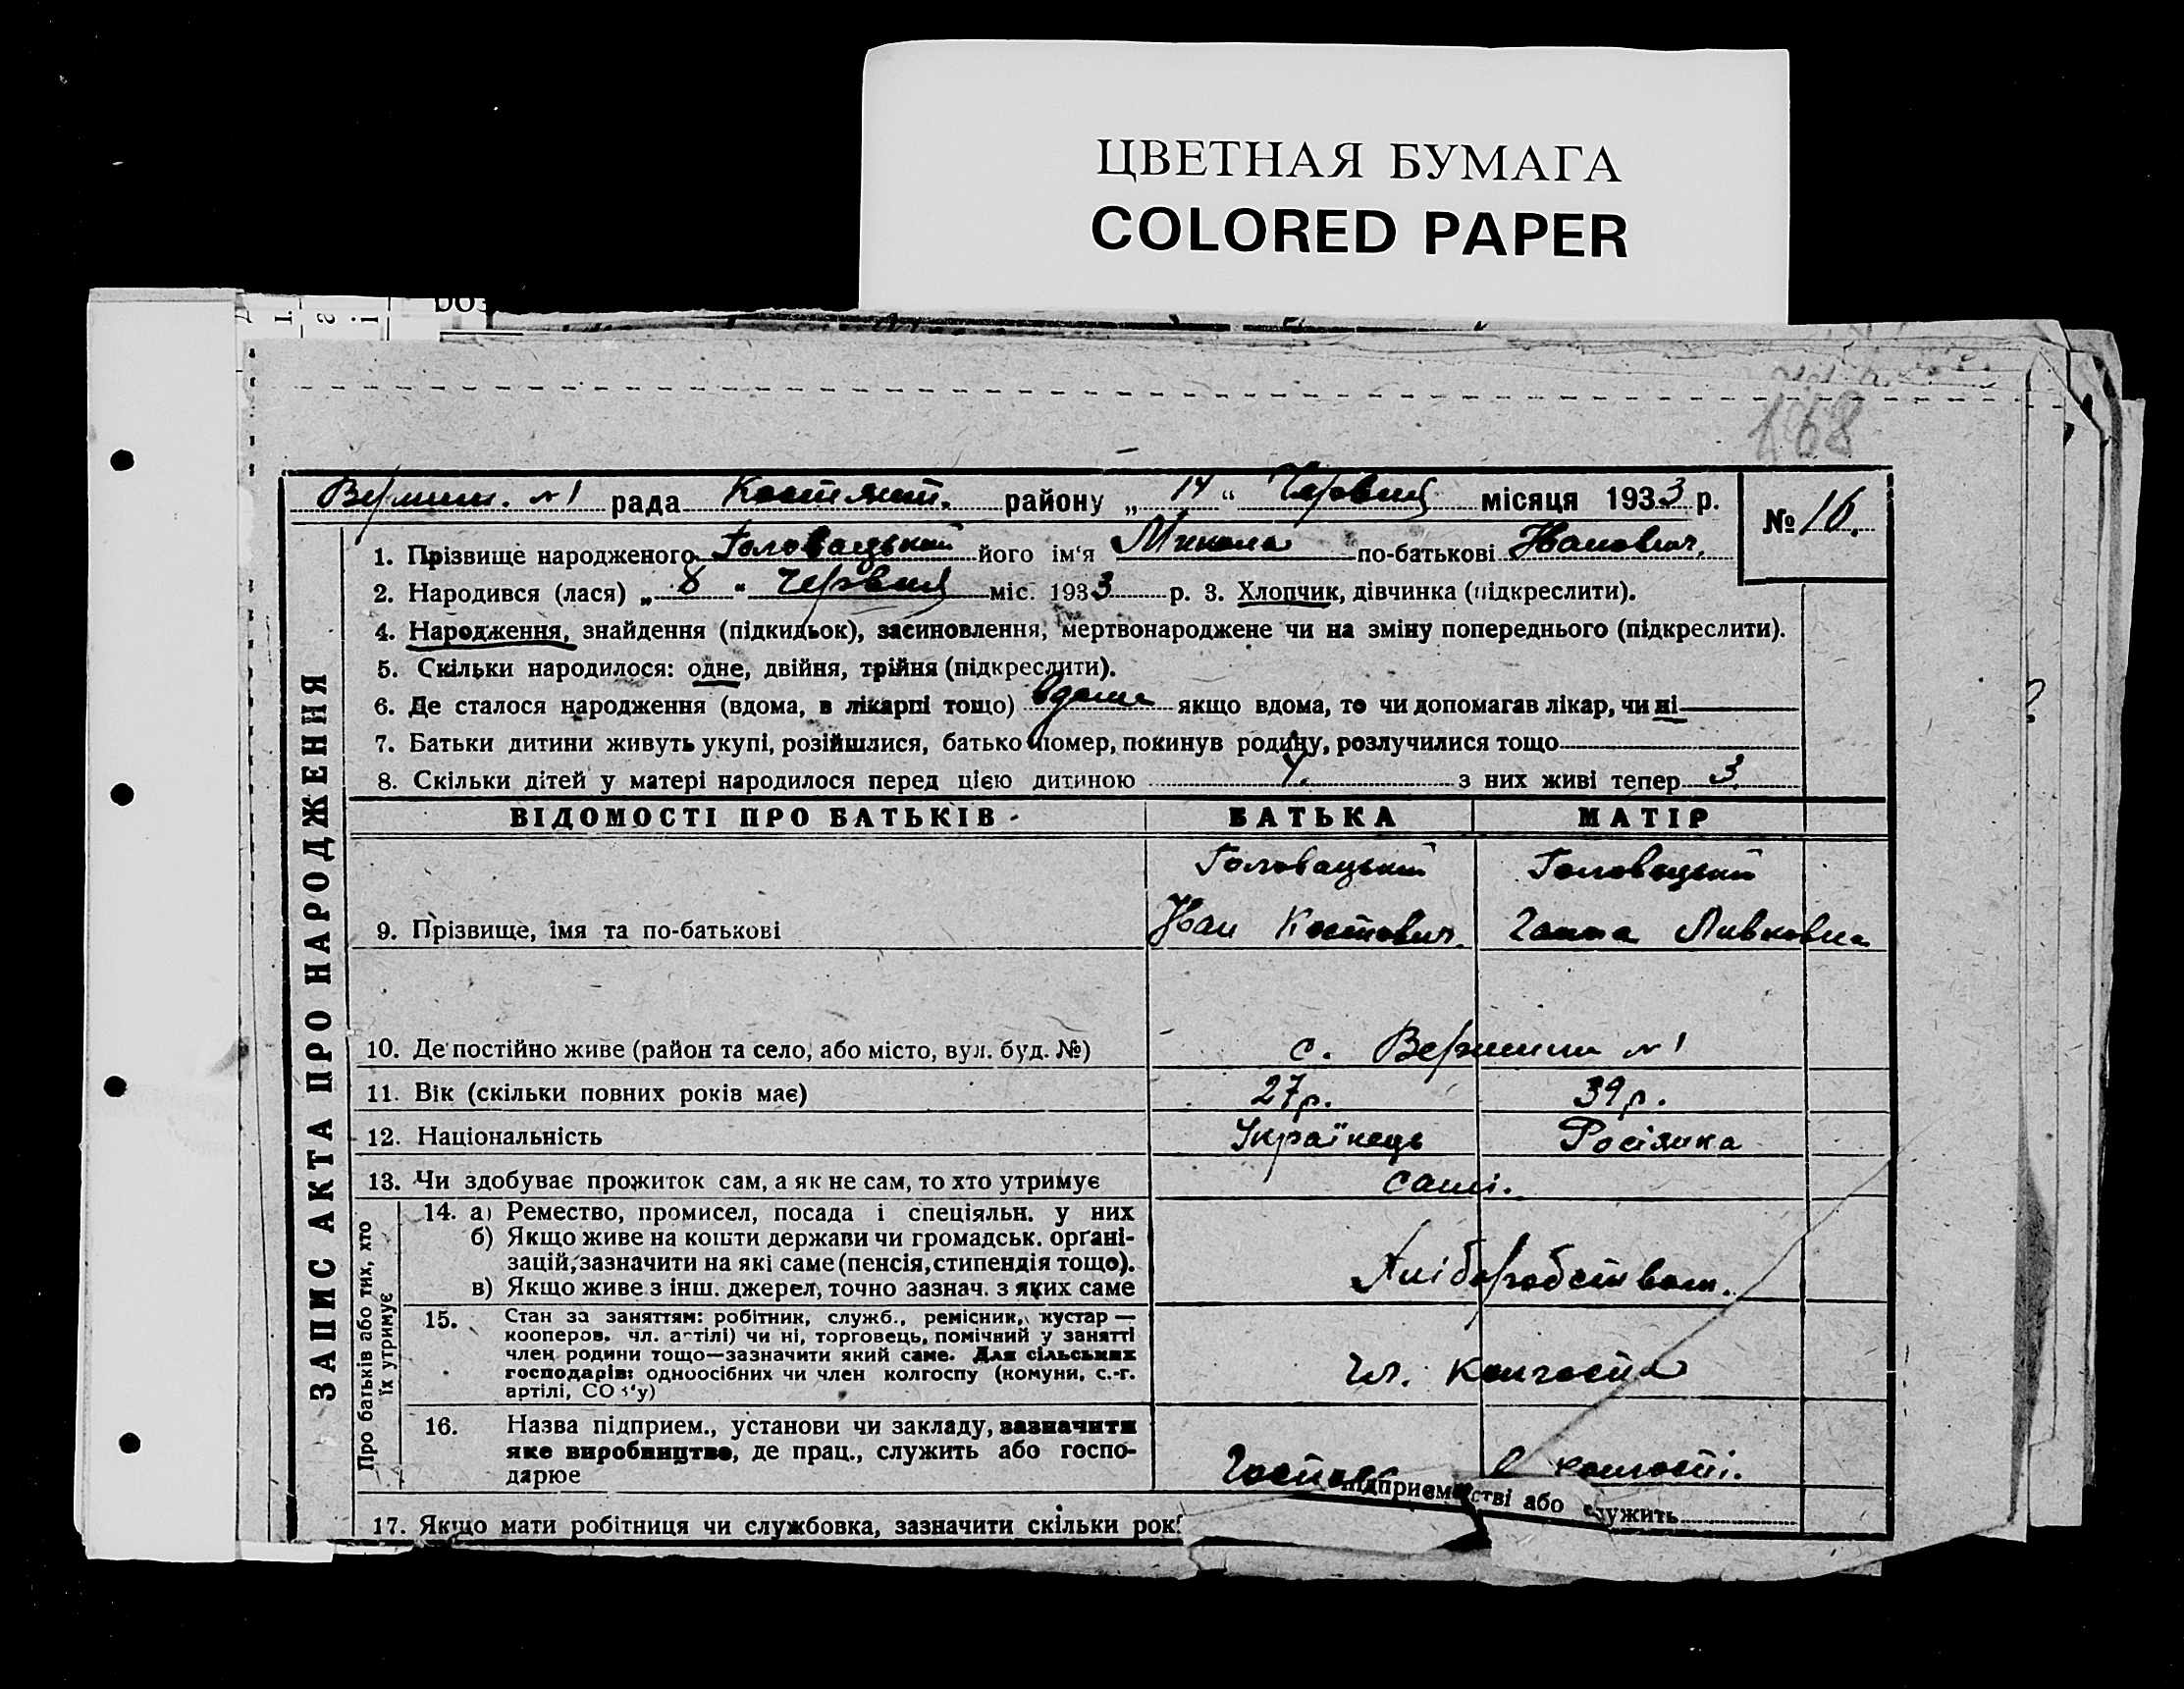 ЦВЕТНАЯ БУМАГА
COLORED PAPER
168
Вершин. №1 рада Костянт. району „ 14 “ Червня місяця 1933 р.
№ 16.
1. Прізвище народженого Головацький його ім‘я Микола по-батькові Іванович.
2. Народився (лася) „ 8 “ Червня міс. 1933 р. 3. Хлопчик, дівчинка (підкреслити).
4. Народження, знайдення (підкидьок), засиновлення, мертвонароджене чи на зміну попереднього (підкреслити).
5. Скільки народилося: одне, двійня, трійня (підкреслити).
6. Де сталося народження (вдома, в лікарні тощо) вдома якщо вдома, то чи допомагав лікар, чи ні
7. Батьки дитини живуть укупі, розійшлися, батько помер, покинув родину, розлучилися тощо
8. Скільки дітей у матері народилося перед цією дитиною з них живі тепер 3
ВІДОМОСТІ ПРО БАТЬКІВ БАТЬКА МАТІР
Головацький Головацький
9. Прізвище, імя та по-батькові Іван Костович. Ганна
10. Де постійно живе (район та село, або місто, вул. буд. №) с. Вершини №1
11. Вік (скільки повних років має) 27 р. 39 р.
12. Національність Українець Росіянка
13. Чи здобуває прожиток сам, а як не сам, то хто утримує самі.
14. а) Ремество, промисел, посада і спеціяльн. у них
б) Якщо живе на кошти держави чи громадськ. органі-
зацій, зазначити на які саме (пенсія, стипендія тощо).
в) Якщо живе з інш. джерел, точно зазнач. з яких саме
Хліборобством.
15. Стан за заняттям: робітник, служб., ремісник, кустар —
кооперов. чл. артілі) чи ні, торговець, помічний у занятті
член родини тощо—зазначити який саме. Для сільських
господарів: одноосібних чи член колгоспу (комуни, с.-г.
артілі, СО у)
Чл. колгоспа
16. Назва підприєм., установи чи закладу, зазначити
яке виробництво, де прац., служить або госпо-
дарює
в колгоспі.
17. Якщо мати робітниця чи службовка, зазначити скільки рок
підприємстві або служить
ЗАПИС АКТА ПРО НАРОДЖЕННЯ
Про батьків або тих, хто
їх утримує